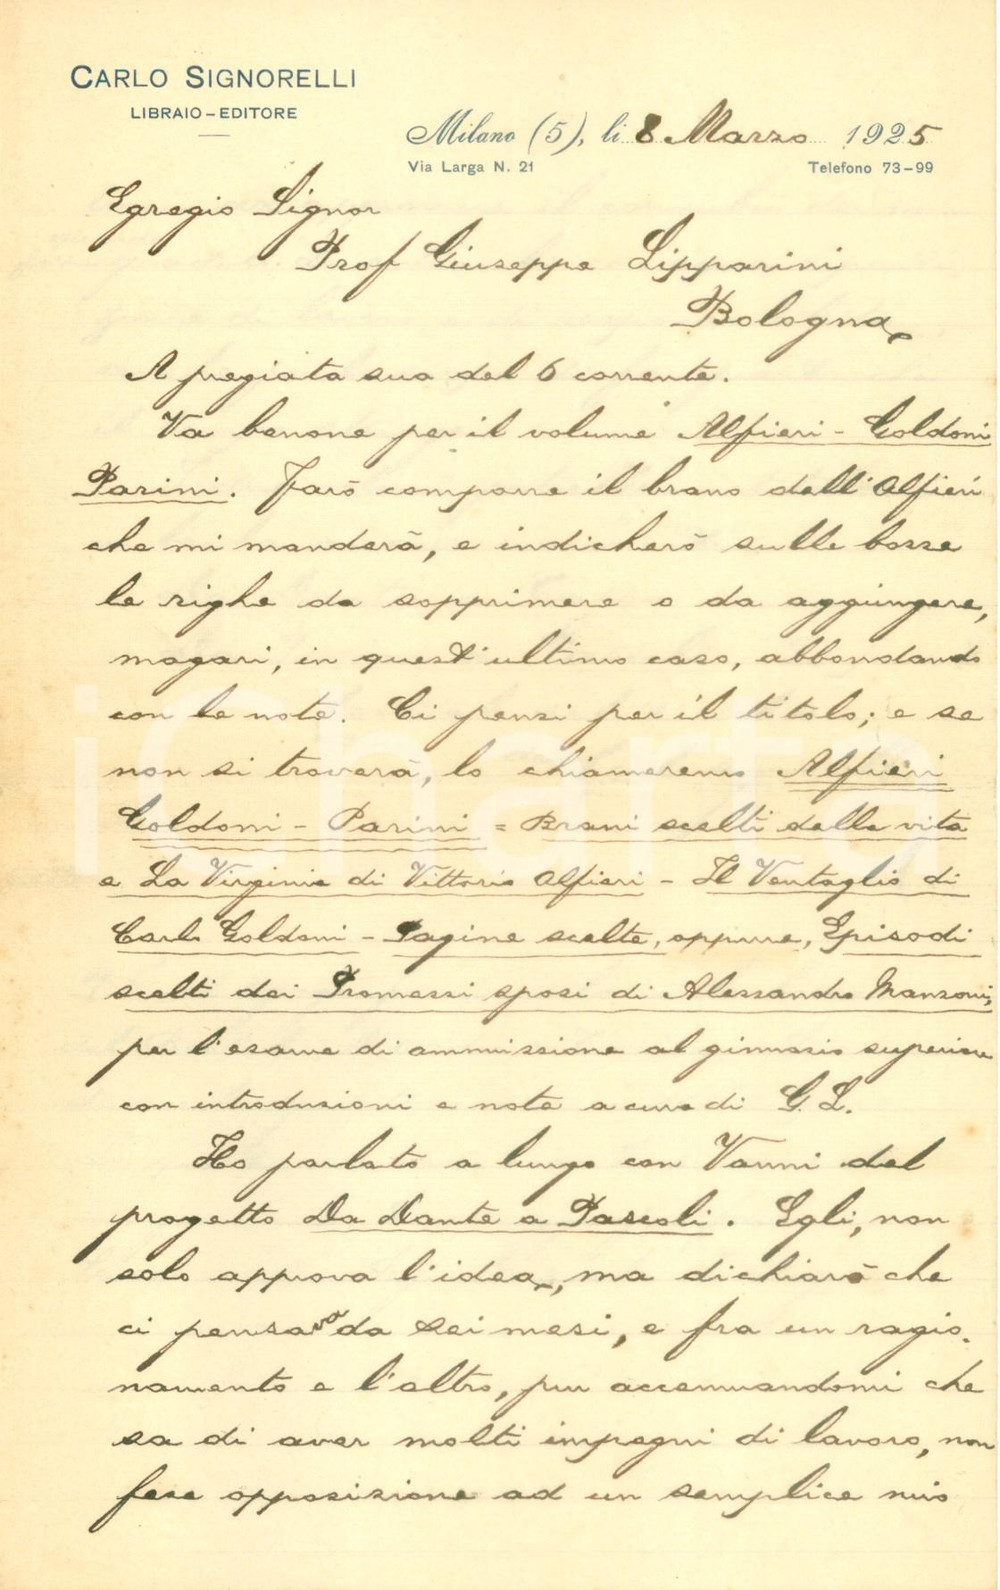 CARLO SIGNORELLI
LIBRAIO-EDITORE
Milano (5), li 8 Marzo 1925
Via Larga N. 21 Telefono 73-99
Egregio Signor
Prof Giuseppe Lipparini
Bologna
A pregiata sua del 6 corrente.
Va benone per il volume Alfieri - Goldoni
Parini. Farò comporre il brano dell'Alfieri
che mi manderà, e indicherò sulle bozze
le righe da sopprimere o da aggiungere,
magari, in quest'ultimo caso, abbondando
con le note. Ci pensi per il titolo; e se
non si troverà, lo chiameremo Alfieri
Goldoni - Parini = Brani scelti della vita
e La Virginia di Vittorio Alfieri - Il Ventaglio di
Carlo Goldoni - Pagine scelte, oppure, Episodi
scelti dei Promessi sposi di Alessandro Manzoni,
per l'esame di ammissione al ginnasio superiore
con introduzioni e note a cura di G. L.
Ho parlato a lungo con Vanni del
progetto Da Dante a Pascoli. Egli, non
solo approva l'idea, ma dichiarò che
ci pensava da sei mesi, e fra un ragio-
namento e l'altro, pur accennandomi che
sa di aver molti impegni di lavoro, non
fece opposizione ad un semplice mio
iCharta